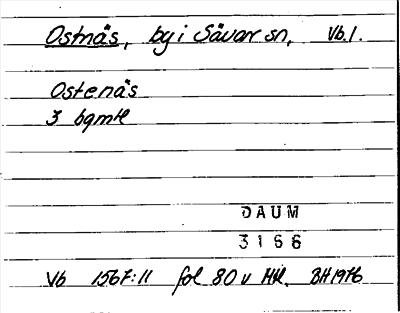 Ostnäs, by i Sävar sn, Vb.l.
Ostenäs
3 bqmtl
DAUM
3166
Vb 1567:11 fol 80 v Htl. BH1976